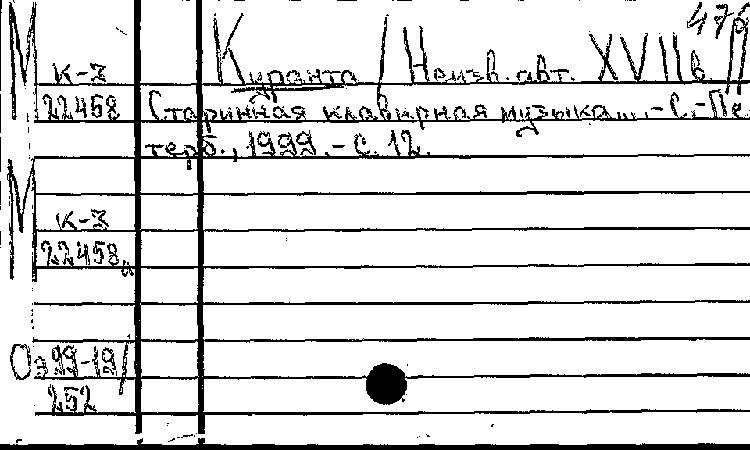 476
М К-3 Куранта / Неизв. авт. XVII в. //
22458 Старинная клавирная музыка... - С.-Пе
терб., 1999. - С. 12.
М К-3
22458а
Оз 99-19/
252